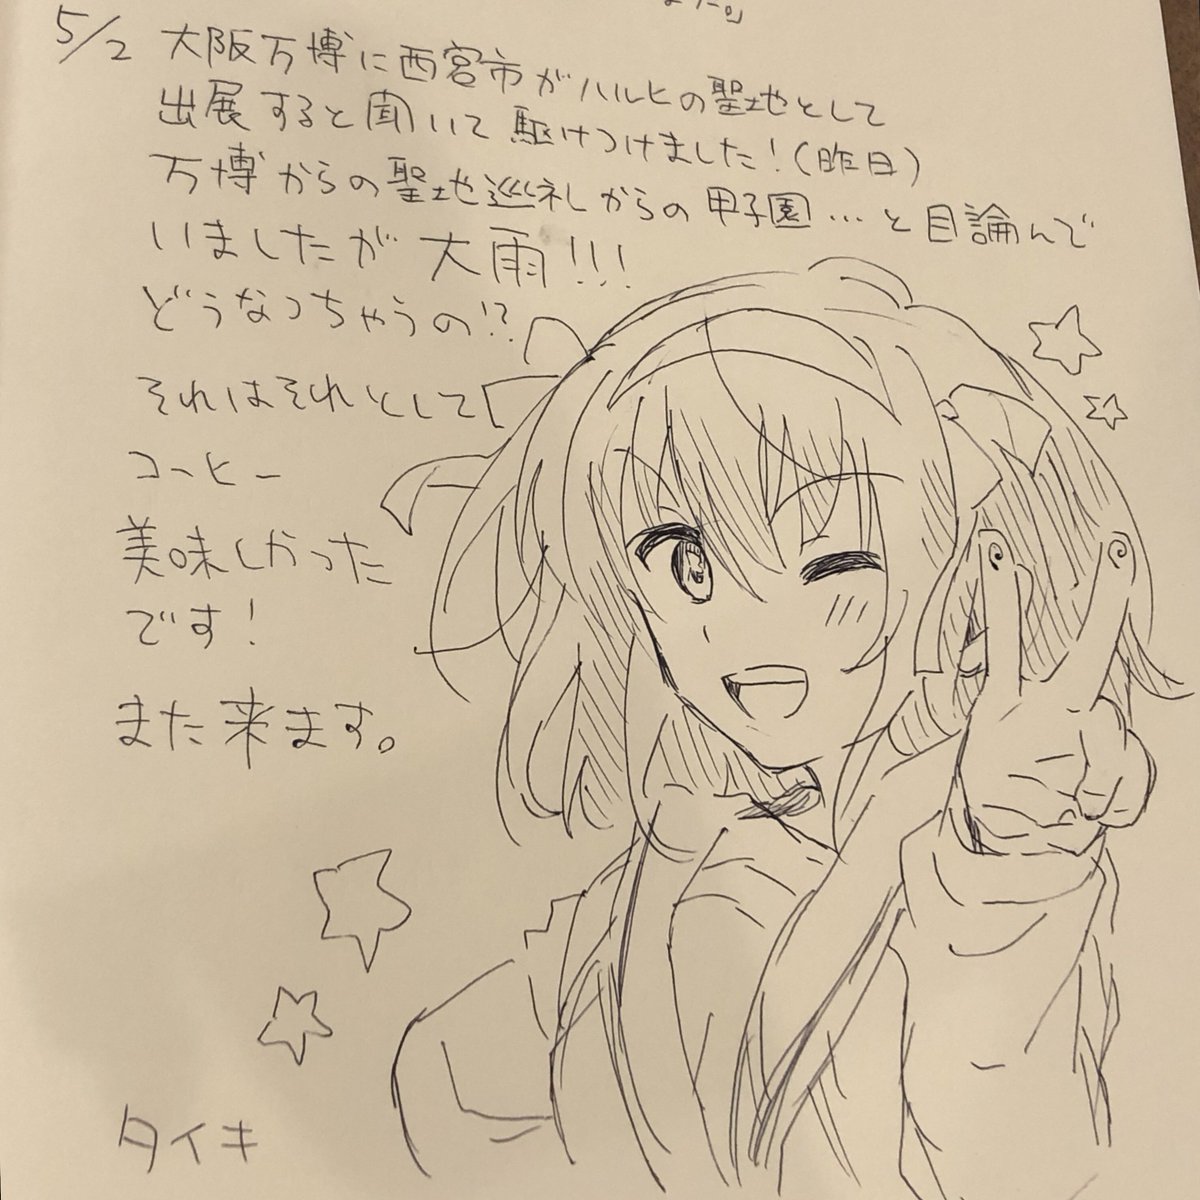 5/2 大阪万博に西宮市がハルヒの聖地として
出展すると聞いて駆けつけました！(昨日)
万博からの聖地巡礼からの甲子園…と目論んで
いましたが大雨!!!
どうなっちゃうの!?
それはそれとして
コーヒー
美味しかった
です！
また来ます。
タイキ